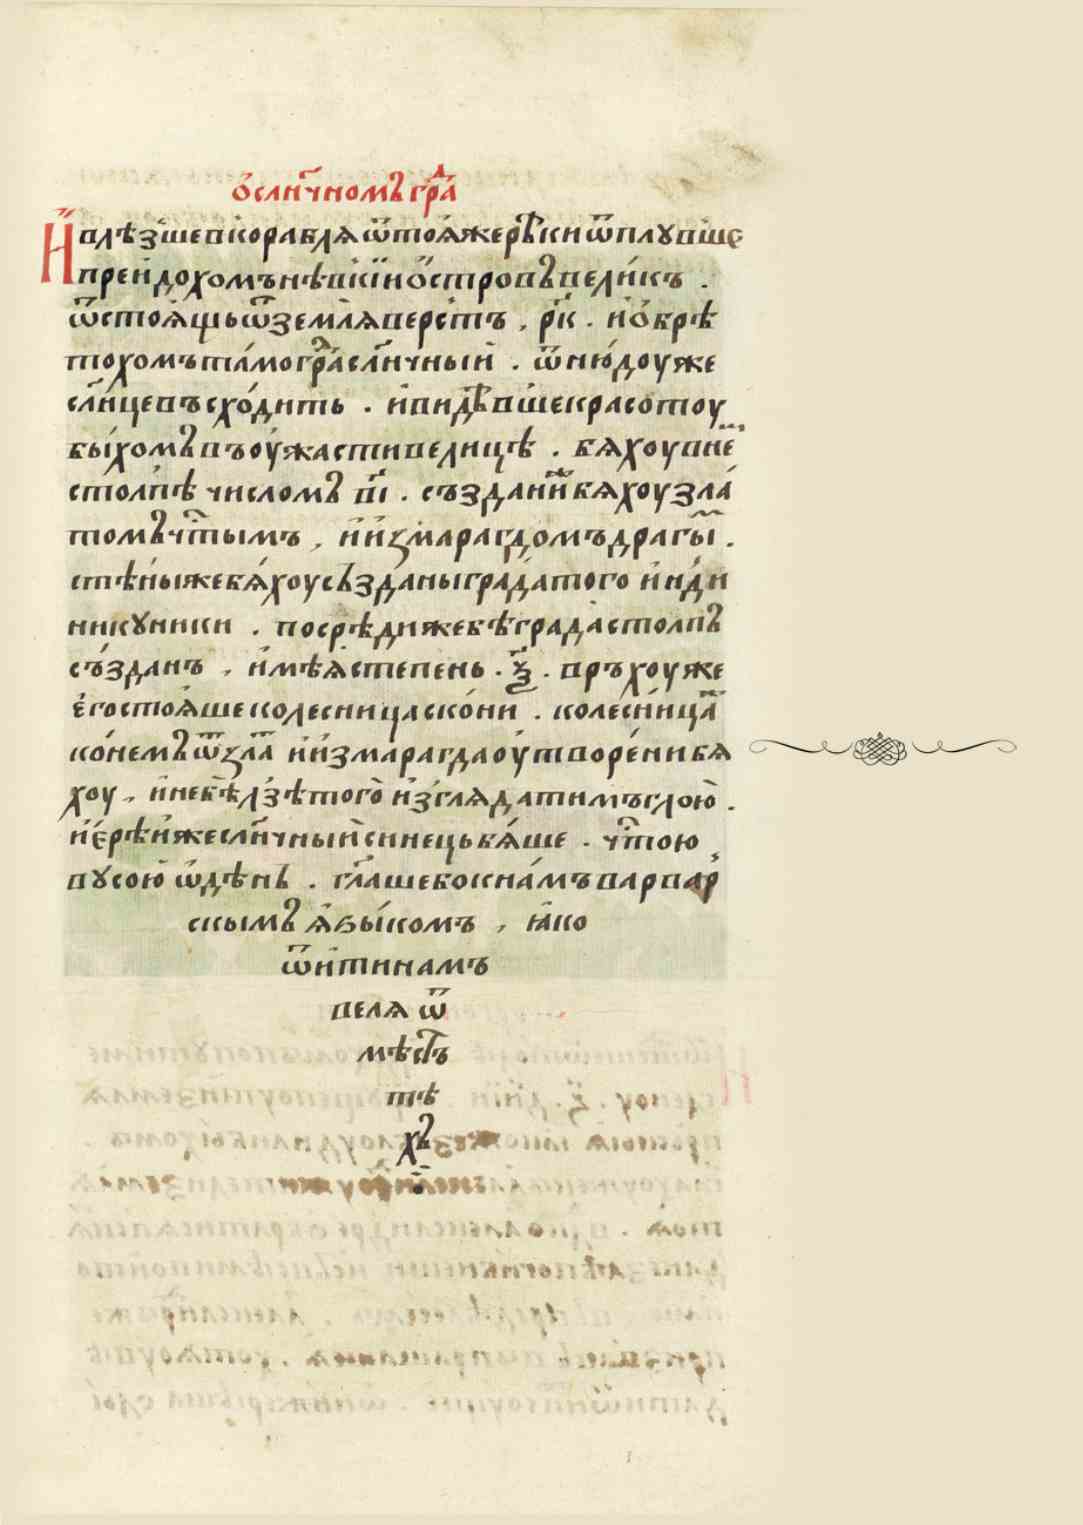 ѽ слн҃чномъ гра́дⷣ
И҆ влѣ́зше в корабля ѿ тоя́же рѣки ѿплꙋвше
преи́дохомъ нѣ в кі́и ѻ҆стровъ вели́къ .
ѿстоя́щь ѿ земля верстъ , р҃к . и҆ ѻ҆брѣ
тохомъ та́мо гра́дⷣ слн҃чныи . ѿню́доуже
слн҃це въсхо́дить . и҆ ви́дѣвше красотоу
бы́хомъ въ оу҆жасти велицѣ . бяхоу в неⷨ
столпѣ числомъ в҃і . създании бяхоу зла
томъ чⷭ҇тымъ , и҆ и҆змарагдомъ драгы́ⷨ .
стѣны же бя́хоу създаны гра́да того и҆нди
никꙋники . посрѣди же бѣ града столпъ
съ́зданъ , и҆мѣя степень . ѯ҃ . връхоу же
є҆го стоя́ше колесница с ко́ни . колесни́цаⷤ
ко́немъ ѿ зла́та и҆ и҆змарагда оу҆творе́ни бя
хоу , и҆ не бѣ лзѣ того̀ и҆згля́дати мъглою̀ .
и҆є҆рѣи же слн҃чныи синець бя́ше . чⷭ҇тою
вꙋсою ѡ҆дѣнъ . гл҃аше бо к на́мъ варвар
скымъ я҆зы́комъ , ꙗ҆́ко
ѿити намъ
веля ѿ
мѣстъ
тѣ
хъ